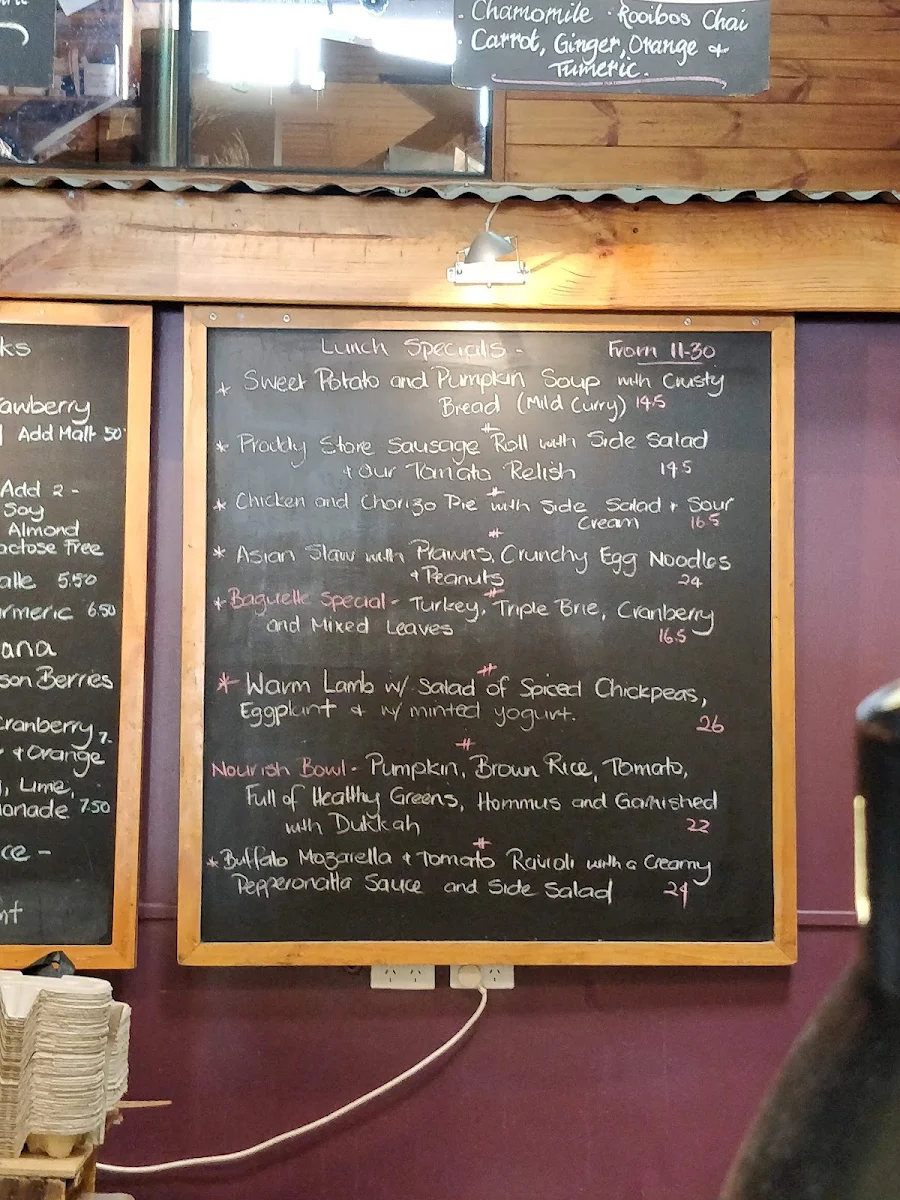 Chamomile · Rooibos Chai
· Carrot, Ginger, Orange +
Tumeric.
ks
awberry
Add Malt 50
Add 2 -
Soy
Almond
actose Free
5.50
rmeric 6.50
ana
son Berries
Cranberry 7-
+ Orange
, Lime,
onade 7.50
ce -
nt
Lunch Specials - From 11-30
* Sweet Potato and Pumpkin Soup with Crusty
Bread (Mild Curry) 14.5
#
* Proddy Store Sausage Roll with Side Salad
+ Our Tomato Relish 14.5
#
* Chicken and Chorizo Pie with Side Salad + Sour
Cream 16.5
#
* Asian Slaw with Prawns, Crunchy Egg Noodles
+ Peanuts 24
#
* Baguette Special - Turkey, Triple Brie, Cranberry
and Mixed Leaves 16.5
#
* Warm Lamb w/ Salad of Spiced Chickpeas,
Eggplant & w/ minted yogurt. 26
#
Nourish Bowl - Pumpkin, Brown Rice, Tomato,
Full of Healthy Greens, Hommus and Garnished
with Dukkah 22
#
* Buffalo Mozarella + Tomato Ravioli with a Creamy
Pepperonatta Sauce and Side Salad 24